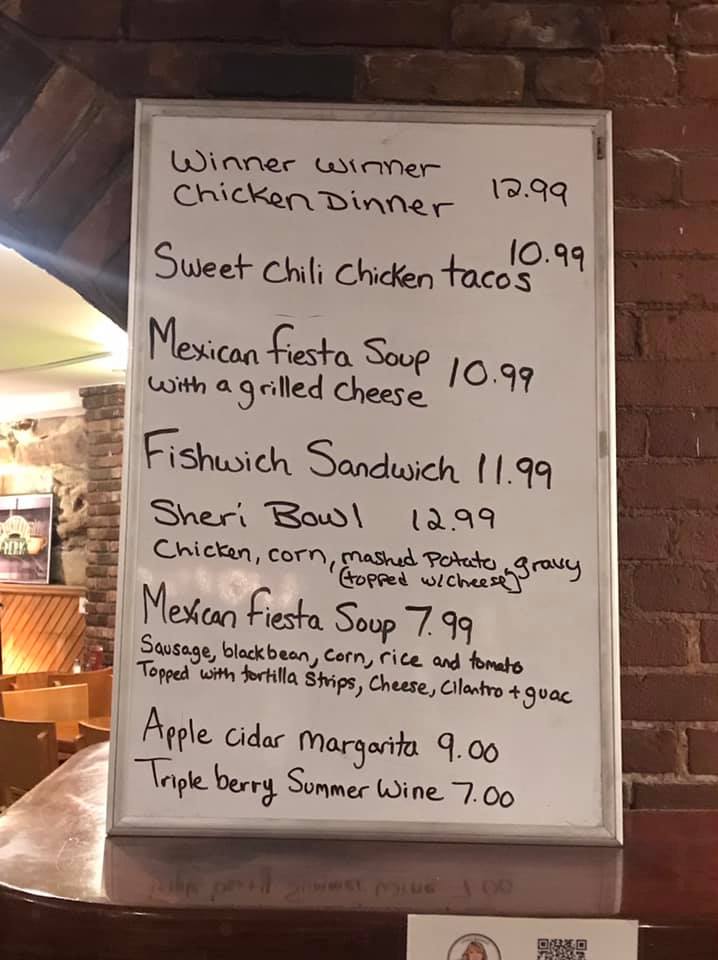 Winner Winner
Chicken Dinner 12.99
Sweet Chili Chicken tacos 10.99
Mexican fiesta Soup 10.99
with a grilled cheese
Fishwich Sandwich 11.99
Sheri Bowl 12.99
Chicken, corn, mashed Potato, gravy
(topped w/cheese)
Mexican fiesta Soup 7.99
Sausage, black bean, corn, rice and tomato
Topped with tortilla Strips, Cheese, Cilantro + guac
Apple cidar margarita 9.00
Triple berry Summer Wine 7.00